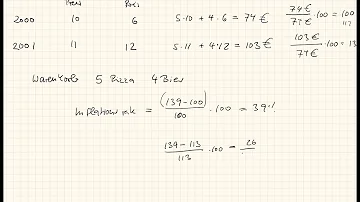 Pizza Bier
2000 10 6 5·10 + 4·6 = 74€ 74€/74€ ·100 = 100
2001 11 12 5·11 + 4·12 = 103€ 103€/74€ ·100 = 13
Warenkorb 5 Pizza 4 Bier
Inflationsrate = (139-100)/100 · 100 = 39%
139-113/113 ·100 = 26